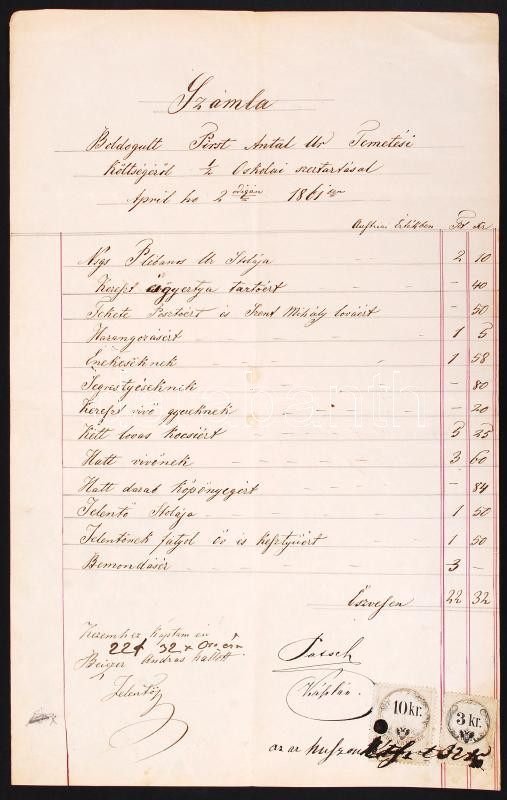 Számla
Boldogult Pirst Antal Ur Temetési
Költségéről 1/2 Oskolai szertartásal
April ho 2 odigán 1861 ken
Austriai Értékben Ft Kr
Ngs Plébános Ur Stolája 2 10
Kereszt gyertya tartóért – 40
Fekete Posztoért és Szent Mihály lováért – 50
Harangozásért 1 5
Énekeseknek 1 58
Segrestyéseknek – 80
Kereszt vivő gyereknek – 20
Kétt lovas Kocsiért 5 25
Hatt vivőnek 3 60
Hatt darab Köpönyegért – 84
Jelentő Stolája 1 50
Jelentőnek fátyol öv és kesztyüért 1 50
Bemondásér 3 –
Öszvesen 22 32
Kezemhez kaptam én
22 f 32 x
András
Jelentő
Káplán
10 kr.
3 kr.
az az huszon